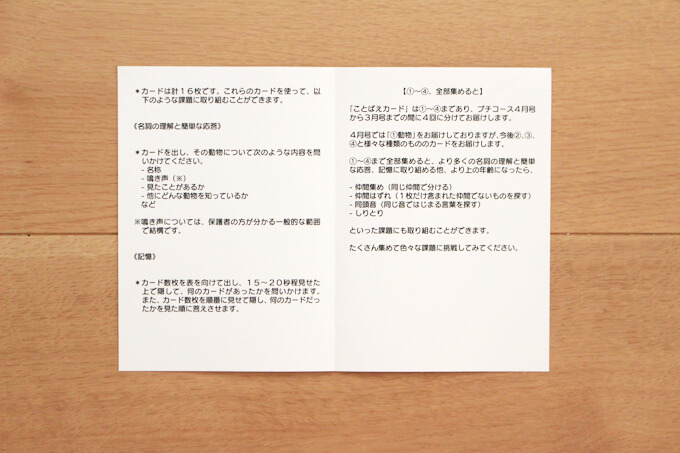 ＊カードは計１６枚です。これらのカードを使って、以
下のような課題に取り組むことができます。
《名詞の理解と簡単な応答》
＊カードを出し、その動物について次のような内容を問
いかけてください。
- 名称
- 鳴き声（※）
- 見たことがあるか
- 他にどんな動物を知っているか
など
※鳴き声については、保護者の方が分かる一般的な範囲
で結構です。
《記憶》
＊カード数枚を表を向けて出し、１５～２０秒程見せた
上で隠して、何のカードがあったかを問いかけます。
また、カード数枚を順番に見せて隠し、何のカードだっ
たかを見た順に答えさせます。
【①～④、全部集めると】
「ことばえカード」は①～④まであり、プチコース４月号
から３月号までの間に４回に分けてお届けします。
４月号では「①動物」をお届けしておりますが、今後②、③、
④と様々な種類のもののカードをお届けします。
①～④まで全部集めると、より多くの名詞の理解と簡単
な応答、記憶に取り組める他、より上の年齢になったら、
- 仲間集め（同じ仲間で分ける）
- 仲間はずれ（１枚だけ含まれた仲間でないものを探す）
- 同頭音（同じ音ではじまる言葉を探す）
- しりとり
といった課題にも取り組むことができます。
たくさん集めて色々な課題に挑戦してみてください。